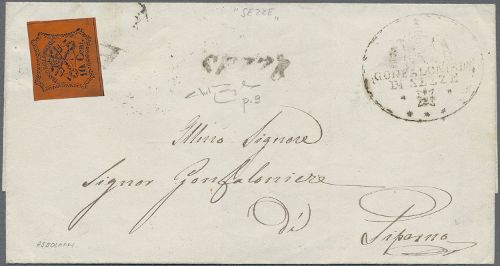 "SEZZE"
10 Cent.
SEZZE
GONFALONIERE
DI SEZZE
p.9
Illmo Signore
Signor Gonfaloniere
Di
Piperno